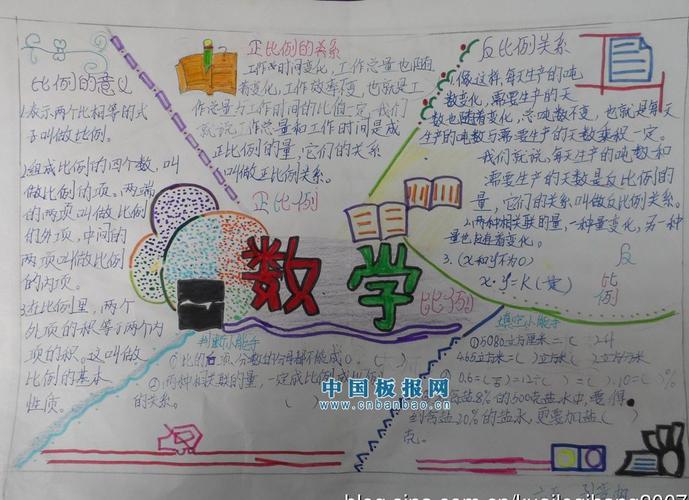 比例的意义
1.表示两个比相等的式
子叫做比例。
2.组成比例的四个数,叫
做比例的项。两端
的两项叫做比例
的外项,中间的
两项叫做比例
的内项。
3.在比例里,两个
外项的积等于两个内
项的积。这叫做
比例的基本
性质。
正比例的关系
工作时间变化,工作总量也随
着变化,工作效率不变,也就是工
作总量与工作时间的比值一定,我们
就说工作总量和工作时间是成
正比例的量,它们的关系
叫做正比例关系。
正比例
反比例关系
1.像这样,每天生产的吨
数变化,需要生产的天
数也随着变化,总吨数不变,也就是每天
生产的吨数与需要生产的天数乘积一定。
我们就说,每天生产的吨数和
需要生产的天数是反比例的
量,它们的关系叫做反比例关系。
2.两种相关联的量,一种量变化,另一种
量也随着变化。
3.(x和y不为0)
x·y=K(一定)
反比例
数学
比例
判断小能手
①比的后项,分数的分母都不能成0。( )
②两种相关联的量,一定成比例或反比例
的关系。 ( )
填空小能手
①5080立方厘米=( )升
465立方米=( )立方( )立方分米
②0.6=
12÷( )
( ):10=( )%
含盐8%的500克盐水中,要得
到含盐20%的盐水,要加盐( )
克。
中国板报网
www.cnbanbao.cn